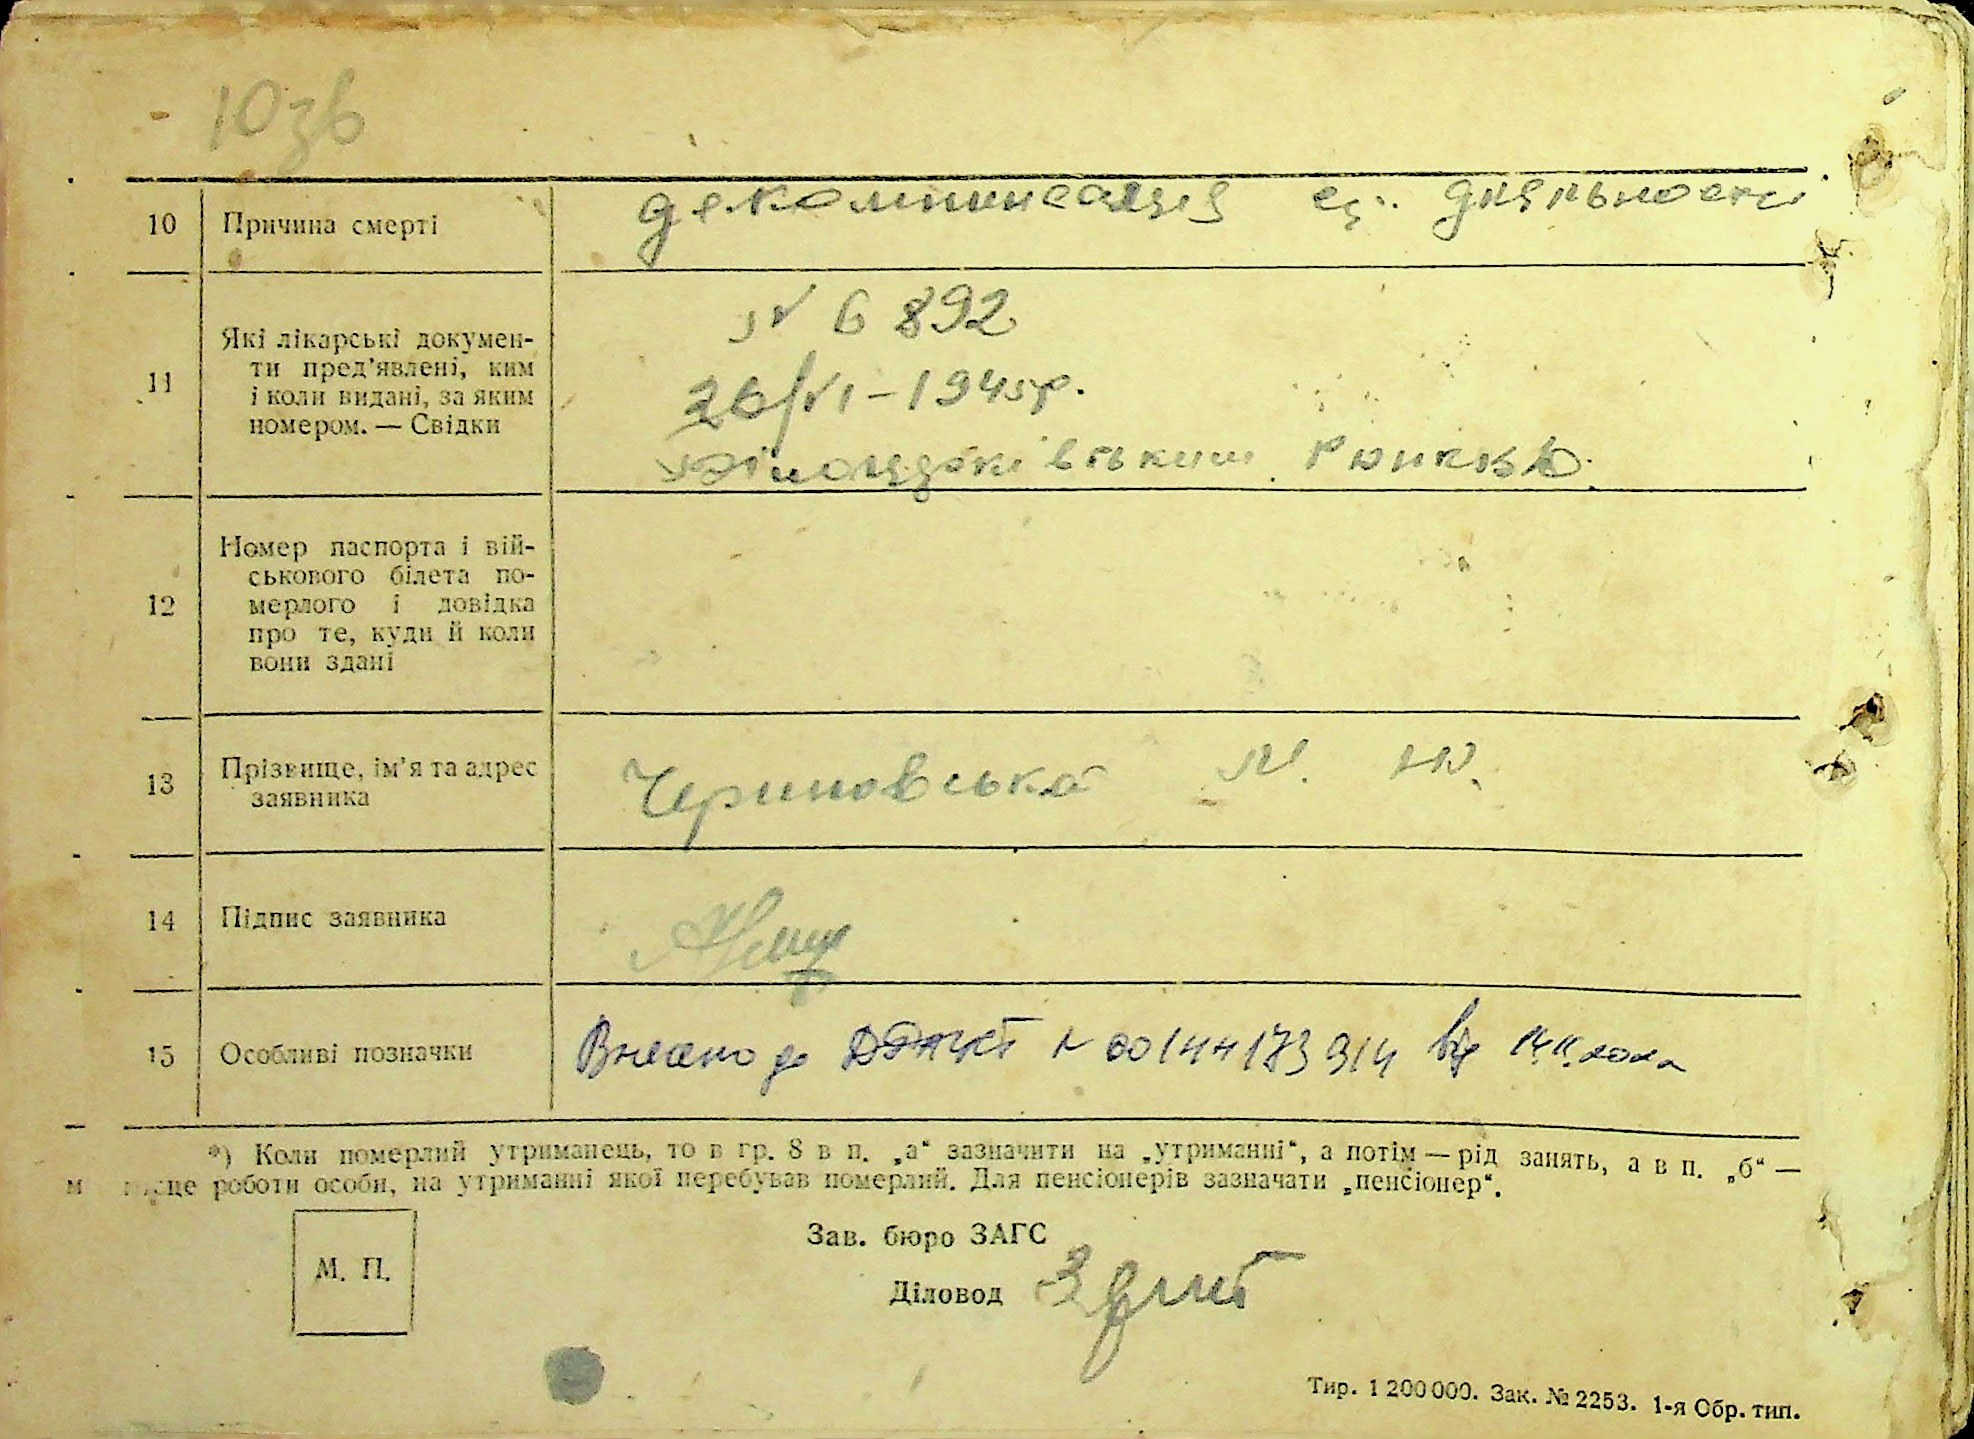 10 зв
10 Причина смерті декомпинсація сц. діяльности
11 Які лікарські докумен-
ти пред'явлені, ким
і коли видані, за яким
номером. — Свідки
№ 6892
26/VI-1945р.
12 Номер паспорта і вій-
ськового білета по-
мерлого і довідка
про те, куди й коли
вони здані
13 Прізвище, ім'я та адрес
заявника
М. Ю.
14 Підпис заявника
15 Особливі позначки Внесено до N 00144173914 від
*) Коли померлий утриманець, то в гр. 8 в п. „а“ зазначити на „утриманні“, а потім — рід занять, а в п. „б“ —
місце роботи особи, на утриманні якої перебував померлий. Для пенсіонерів зазначати „пенсіонер“.
М. П.
Зав. бюро ЗАГС
Діловод
Тир. 1 200 000. Зак. № 2253. 1-я Обр. тип.